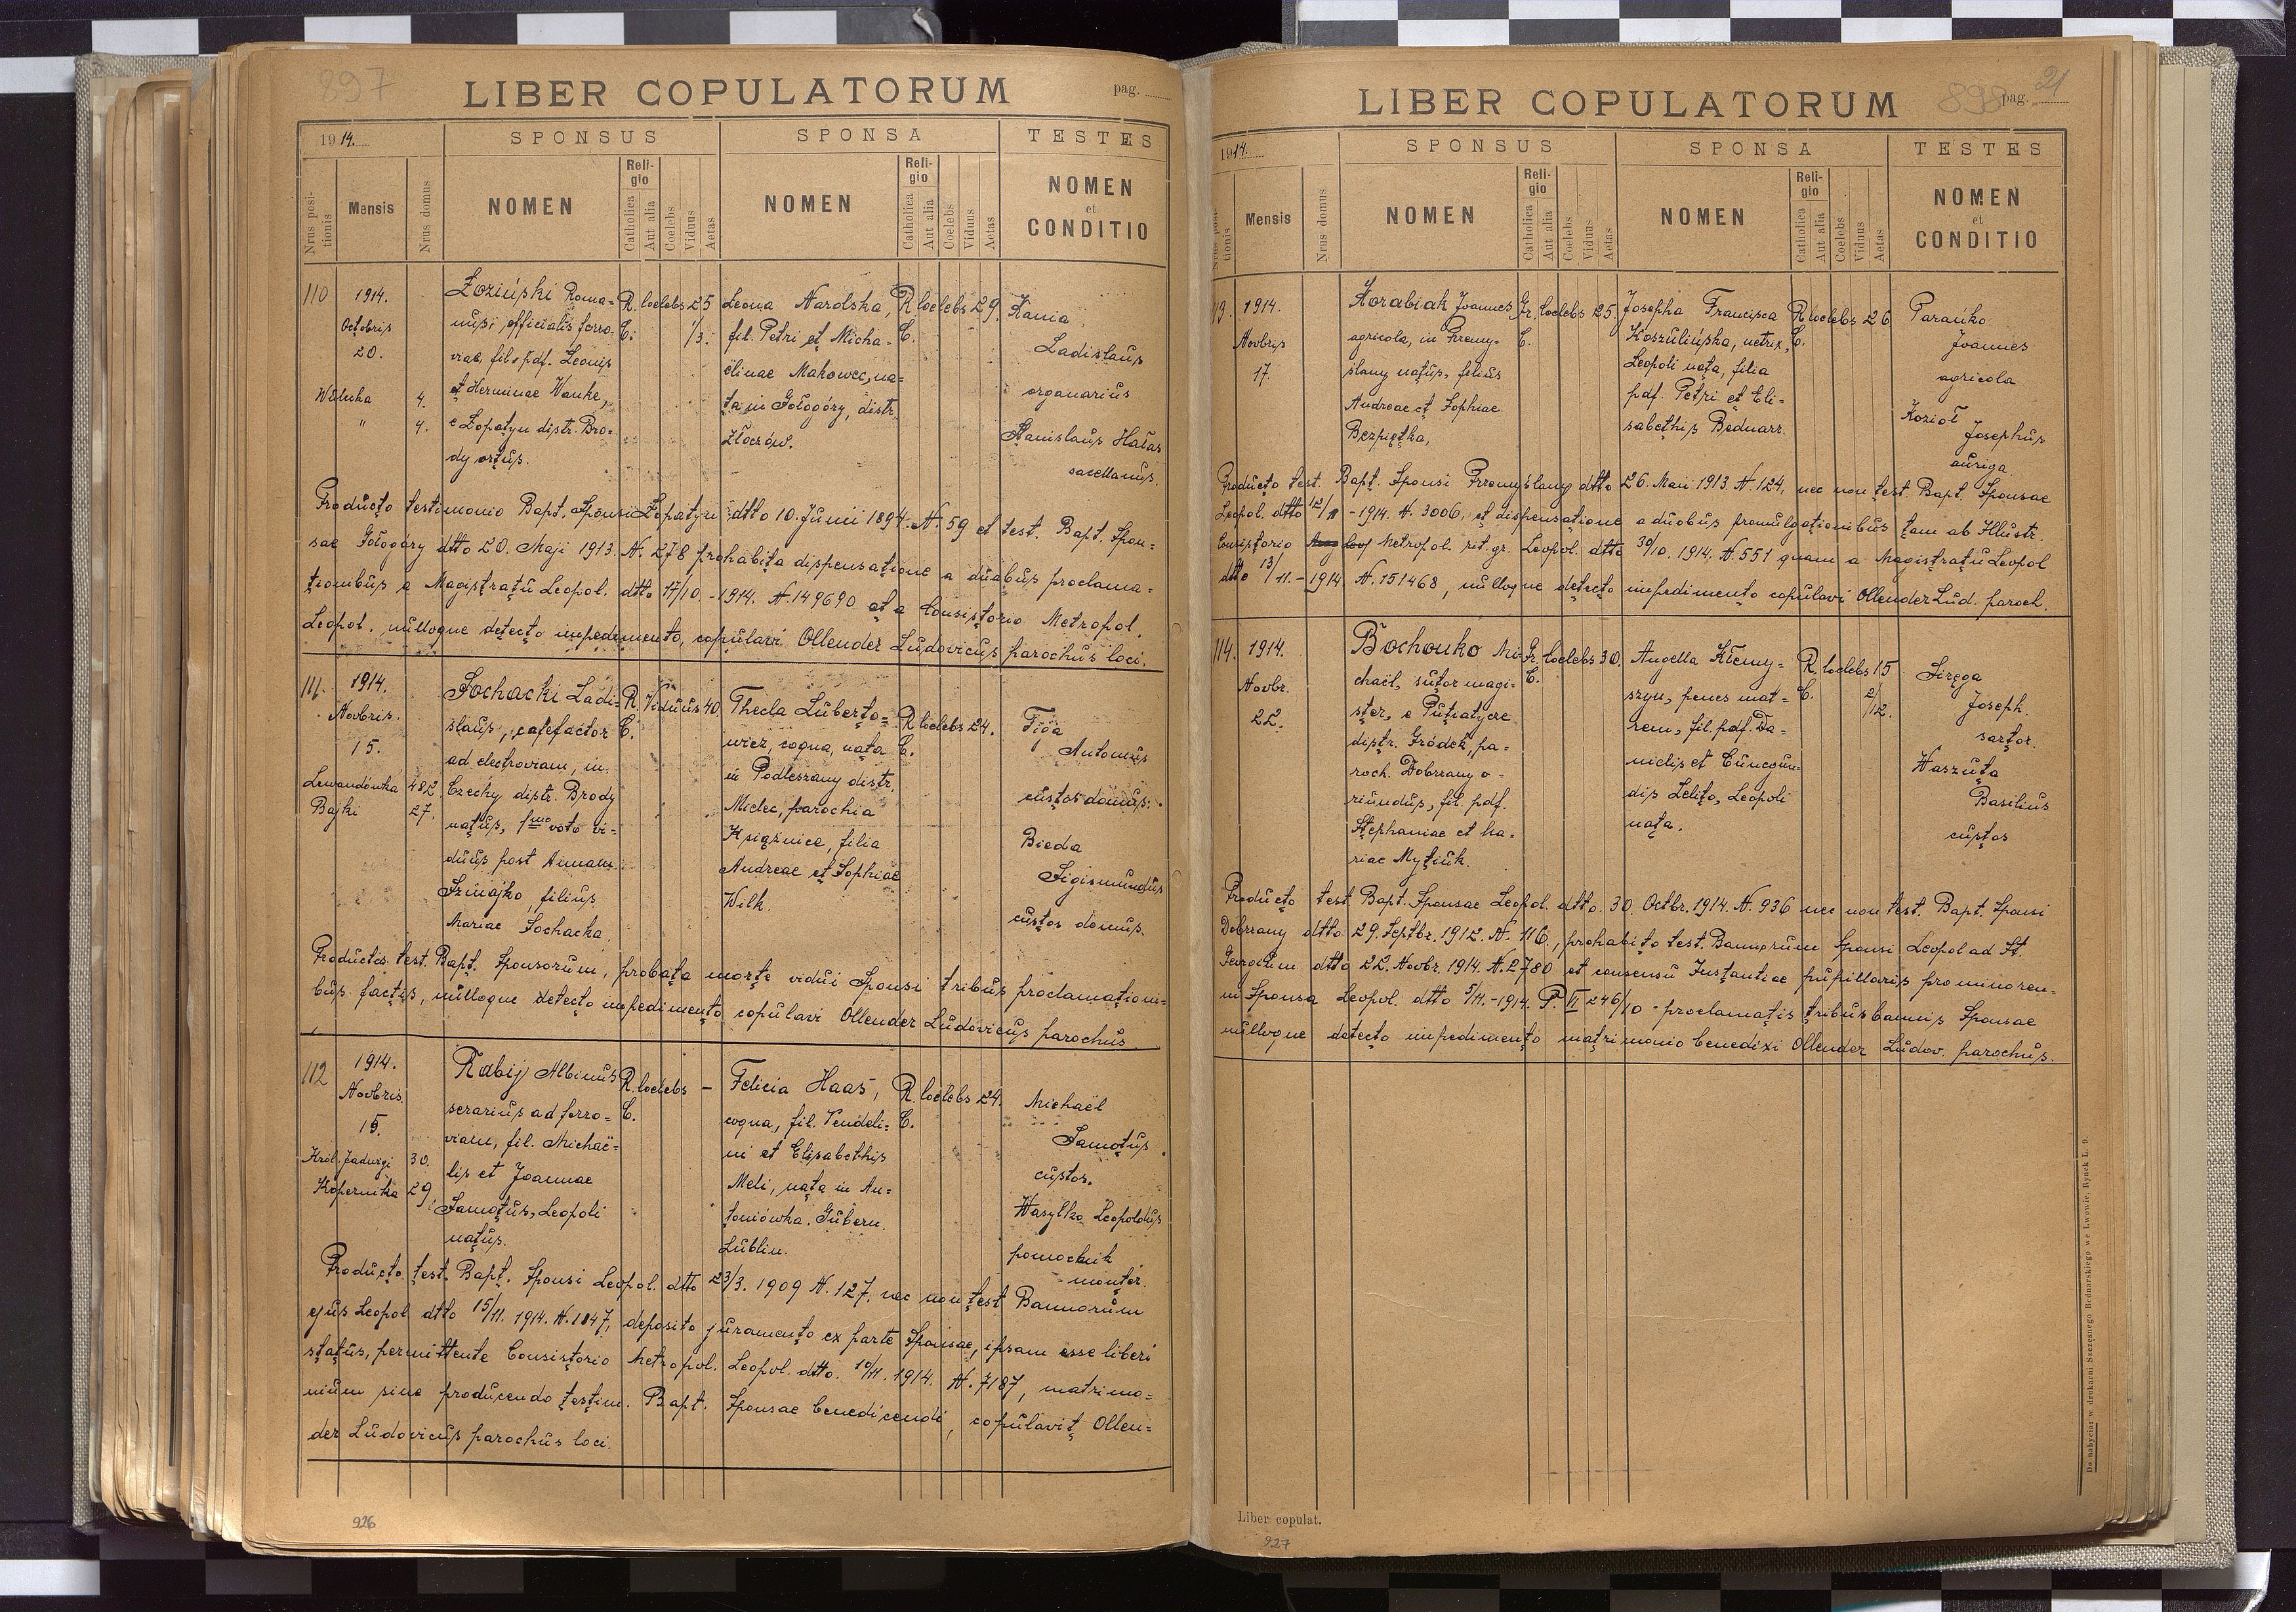 897
LIBER COPULATORUM
pag.
1914.
SPONSUS
SPONSA
TESTES
Nrus posi-
tionis
Mensis
Nrus domus
NOMEN
Reli-
gio
Catholica
Aut alia
Coelebs
Viduus
Aetas
NOMEN
Reli-
gio
Catholica
Aut alia
Coelebs
Viduus
Aetas
NOMEN
et
CONDITIO
110
1914.
Octobris
20.
Wulecka 4.
" 4.
Łoziński Roma-
nus, officialis ferro-
viae, fil. pdf. Leonis
et Herminae Wanke,
e Łopatyn distr. Bro-
dy ortus.
R. C. Coelebs 25 1/3.
Leona Narolska,
fil. Petri et Micha-
ëlinae Makowec, na-
ta in Gołogóry, distr.
Złoczów.
R. C. Coelebs 29.
Kania
Ladislaus
organarius
Stanislaus Hałas
sacellanus.
Producto testimonio Bapt. Sponsi Łopatyn dtto 10. Junii 1894. N. 59 et test. Bapt. Spon-
sae Gołogóry dtto 20. Maji 1913. N. 278 prohabita dispensatione a duabus proclama-
tionibus a Magistratu Leopol. dtto 17/10.-1914. N. 149690 et a Consistorio Metropol.
Leopol. nulloque detecto impedimento, copulavi Ollender Ludovicus parochus loci.
111.
1914.
Novbris.
15.
Lewandówka 482.
Bajki 27.
Sochacki Ladi-
slaus, calefactor
ad electroviam, in
Czechy distr. Brody
natus, 1mo voto vi-
duus post Annam
Szmajko, filius
Mariae Sochacka.
R. C. Viduus 40.
Thecla Luberto-
wicz, coqua, nata
in Podleszany distr.
Mielec, parochia
Książnice, filia
Andreae et Sophiae
Wilk.
R. C. Coelebs 24.
Antonius
custos domus.
Bieda
Sigismundus
custos domus.
Productis test. Bapt. Sponsorum, probata morte vidui Sponsi tribus proclamationi-
bus factis, nulloque detecto impedimento copulavi Ollender Ludovicus parochus
112
1914.
Novbris.
15.
Król. Jadwigi 30.
Kopernika 29.
Rabij Albinus
serarius ad ferro-
viam, fil. Michaë-
lis et Joannae
Samotus, Leopoli
natus.
R. C. Coelebs –
Felicia Haas,
coqua, fil. Vendeli-
ni et Elisabethis
Meli, nata in An-
toniówka. Gubern.
Lublin.
R. C. Coelebs 24.
Michaël
Samotus
custos.
Wasylko Leopoldus
pomocnik
monter.
Producto test. Bapt. Sponsi Leopol. dtto 23/3. 1909 N. 127. nec non test Bannorum
ejus Leopol dtto 15/11. 1914. N. 1847, deposito juramento ex parte Sponsae, ipsam esse liberi
status, permittente Consistorio Metropol. Leopol. dtto. 10/11. 1914. N. 7187, matrimo-
nium sine producendo testim. Bapt. Sponsae benedicendi, copulavit Ollen-
der Ludovicus parochus loci.
926
LIBER COPULATORUM
898
pag. 21
1914.
SPONSUS
SPONSA
TESTES
Nrus posi-
tionis
Mensis
Nrus domus
NOMEN
Reli-
gio
Catholica
Aut alia
Coelebs
Viduus
Aetas
NOMEN
Reli-
gio
Catholica
Aut alia
Coelebs
Viduus
Aetas
NOMEN
et
CONDITIO
113.
1914.
Novbris
17.
Korabiak Joannes
agricola, in Przemy-
ślany natus, filius
Andreae et Sophiae
Bezpiętka,
Gr. C. Coelebs 25.
Josepha Francisca
Koszulińska, netrix,
Leopoli nata, filia
pdf. Petri et Eli-
sabethis Bednarz.
R. C. Coelebs 26
Paranko
Joannes
agricola
Kozioł
Josephus
auriga
Producto test. Bapt. Sponsi Przemyślany dtto 26. Maii 1913. N. 124, nec non test. Bapt. Sponsae
Leopol. dtto 12/11 -1914. N. 3006, et dispensatione a duobus promulgationibus tam ab Illustr.
Consistorio Metropol. rit. gr. Leopol. dtto 30/10. 1914. N. 551 quam a Magistratu Leopol
dtto 13/11.-1914 N. 151468, nulloque detecto impedimento copulavi Ollender Lud. paroch.
114.
1914.
Novbr.
22.
Bochonko Mi-
chaël, sutor magi-
ster, e Putiatycze
distr. Gródek, pa-
roch. Dobrzany o-
riundus, fil. pdf.
Stephaniae et Ma-
riae Mytiuk.
Gr. C. Coelebs 30.
Angella Klemy-
szyn, penes mat-
rem, fil. pdf. Da-
nielis et Cunegun-
dis Zelito, Leopoli
nata.
R. C. Coelebs 15 2/12.
Siręga
Joseph.
sartor.
Waszuta
Basilius
custos
Producto test. Bapt. Sponsae Leopol. dtto. 30. Octbr. 1914. N. 936 nec non test. Bapt. Sponsi
Dobrzany dtto 29. Septbr. 1912. N. 116., prohabito test. Bannorum Sponsi Leopol ad St.
Georgium dtto 22. Novbr. 1914. N. 2780 et consensu Instantiae pupillaris pro minoren-
ni Sponsa Leopol. dtto 5/11.-1914. P. VI 246/10 - proclamatis tribus bannis Sponsae
nulloque detecto impedimento matrimonio benedixi Ollender Ludov. parochus.
Liber copulat.
927
Do nabycia w drukarni Szczęsnego Bednarskiego we Lwowie, Rynek L. 9.